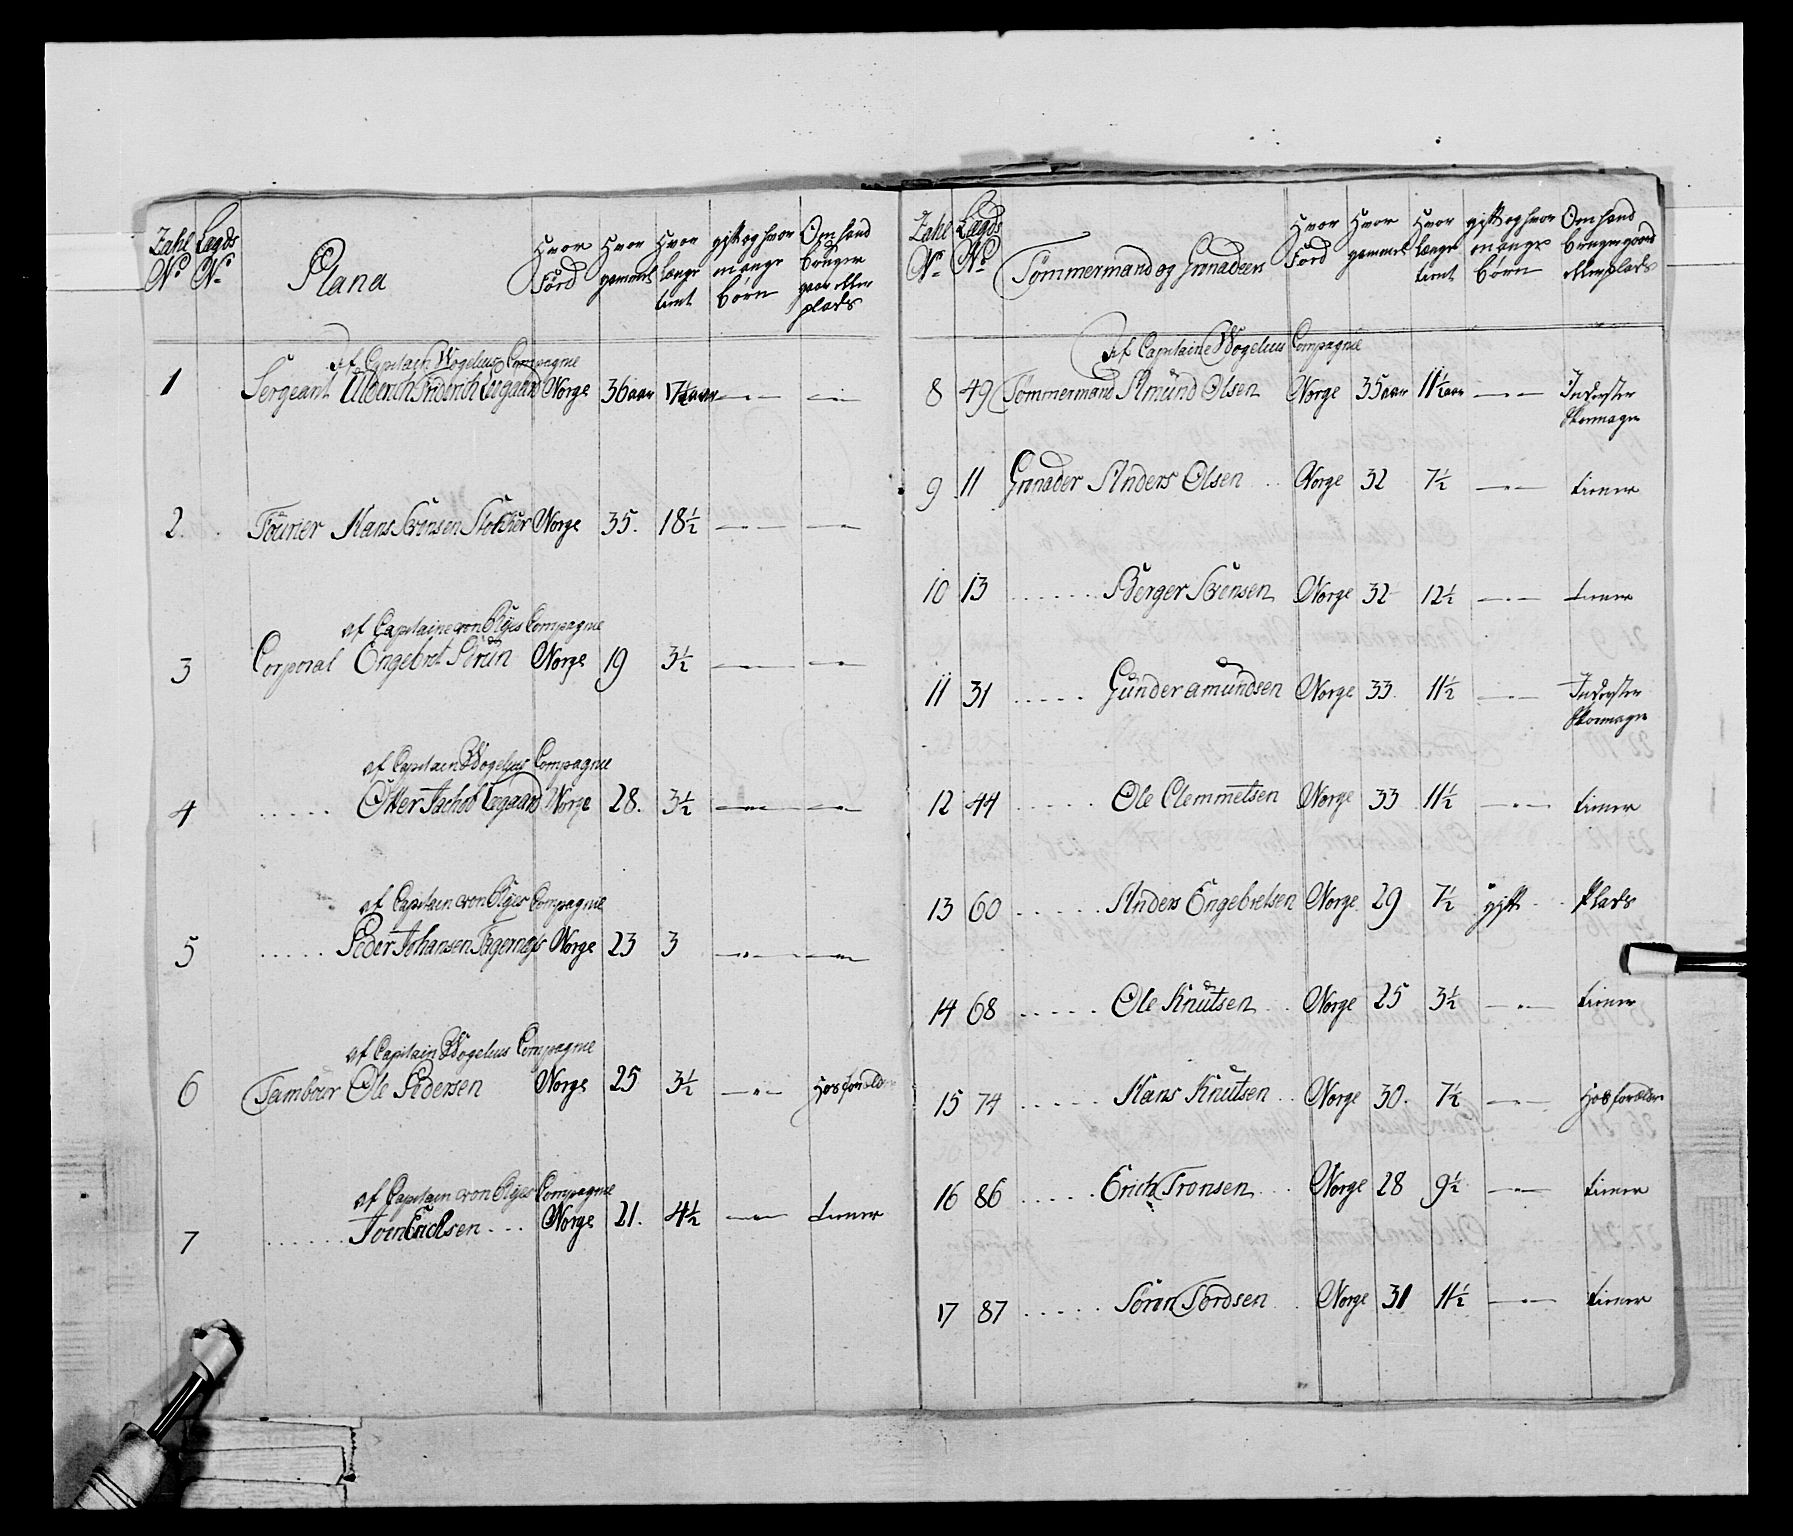 Zahl N° Lægds N° Plana Hvor Fôrd Hvor gammel Hvor længe tient gift og hvor mange børn Om hand bruger gaar eller plads
af Capitain Wogelius Compagnie
1 Sergeant Ulderich Friderich Leegaard Norge 36 aar 17½ aar
2. Fourier Hans Sørensen Norge 35. 18½
af Capitaine von Ryes Compagnie
3 Corporal Engebret Norge 19 3½
af Capitain Wogelius Compagnie
4 ..... Otter Jachob Leegaard Norge 28. 3½
af Capitain von Ryes Compagnie
5 ..... Peder Johansen Norge 23 3
af Capitain Wogelius Compagnie
6 Tambour Ole Pedersen Norge 25 3½ Hos forældre
af Capitain von Ryes Compagnie
7 ...... Erichsen ... Norge 21. 4½ tiener
Zahl N° Lægds N° Tømmermand og Grenadeer Hvor Fôrd Hvor gammel Hvor længe tient gift og hvor mange børn Om hand bruger gaard eller plads
Af Capitaine Wogelius Compagnie
8 49 Tømmermand Amund Olsen Norge 35 aar 11½ aar Inderster
Skomager
9 11 Grenader Anders Olsen .. Norge 32 7½ tiener
10 13 ...... Berger Norge 32 12½ tiener
11 31 ..... Gunder amundsen Norge 33 11½ Inderster
Skomager
12 44 ..... Ole Clemmetsen Norge 33 11½ tiener
13 60 ..... Anders Engebretsen Norge 29 7½ gift .. Plads
14 68 ..... Ole Knutsen .. Norge 25 3½ tiener
15 74 ..... Hans Knutsen .. Norge 30. 7½ Hos forældre
16 86 ..... Erich Tronsen ... Norge 28 9½ tiener
17 87 ..... Søren Tordsen .. Norge 31 11½ tiener